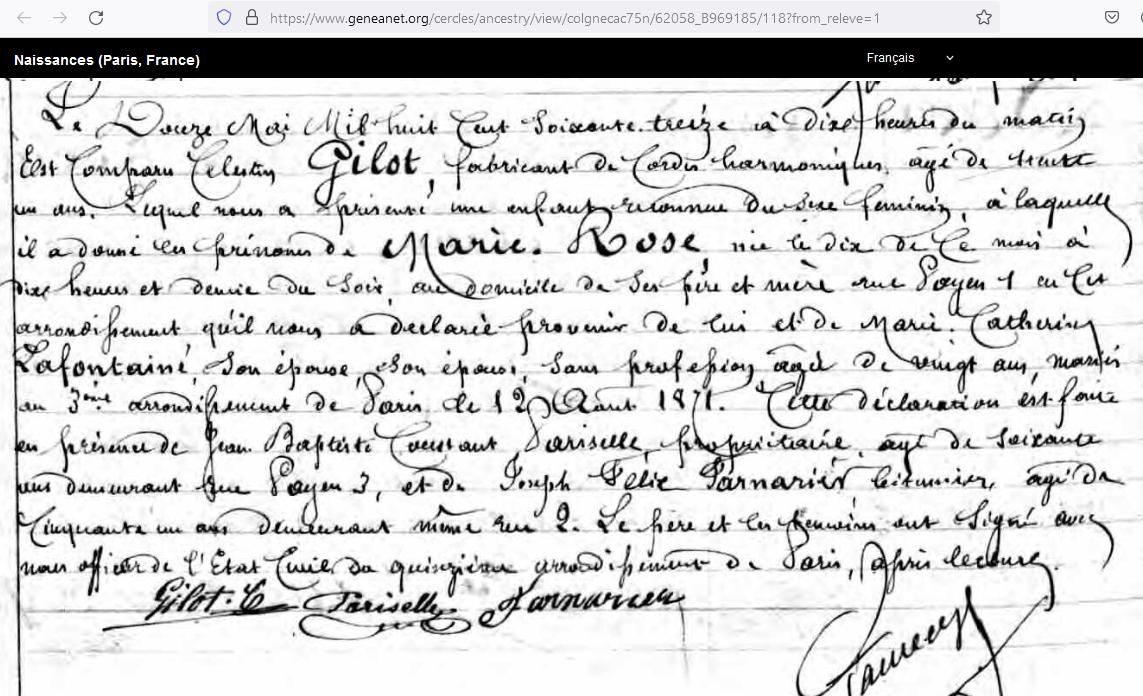 https://www.geneanet.org/cercles/ancestry/view/colgnecac75n/62058_B969185/118?from_releve=1
Naissances (Paris, France) Français
Le Douze Mai Mil huit Cent Soixante-treize à dixe heures du matin
Est Comparu Celestin Gilot, fabricant de Cordes harmoniques, agé de trente
un ans. Lequel nous a présenté une enfant reconnue du sexe feminin, à laquelle
il a donné les prénoms de Marie. Rose, née le dix de Ce mois à
dixe heures et demie du Soir, au domicile de Ses père et mère rue Payen 1 en Cet
arrondissement, qu'il nous a declarée provenir de lui et de Marie. Catherine
Lafontaine, Son épouse, Son épouse, Sans profession agée de vingt ans, mariés
au 3ème arrondissement de Paris, le 12 Août 1871. Cette déclaration est faite
en présence de Jean Baptiste Constant Pariselle, propriétaire, agé de Soixante
ans demeurant Rue Payen 3, et de Joseph Félix Parnarier bitumier, agé de
Cinquante un ans demeurant même rue 2. Le père et les témoins ont Signé avec
nous officier de l'Etat Civil du quinzième arrondissement de Paris, après lecture.
Gilot. C Pariselle Parnarier